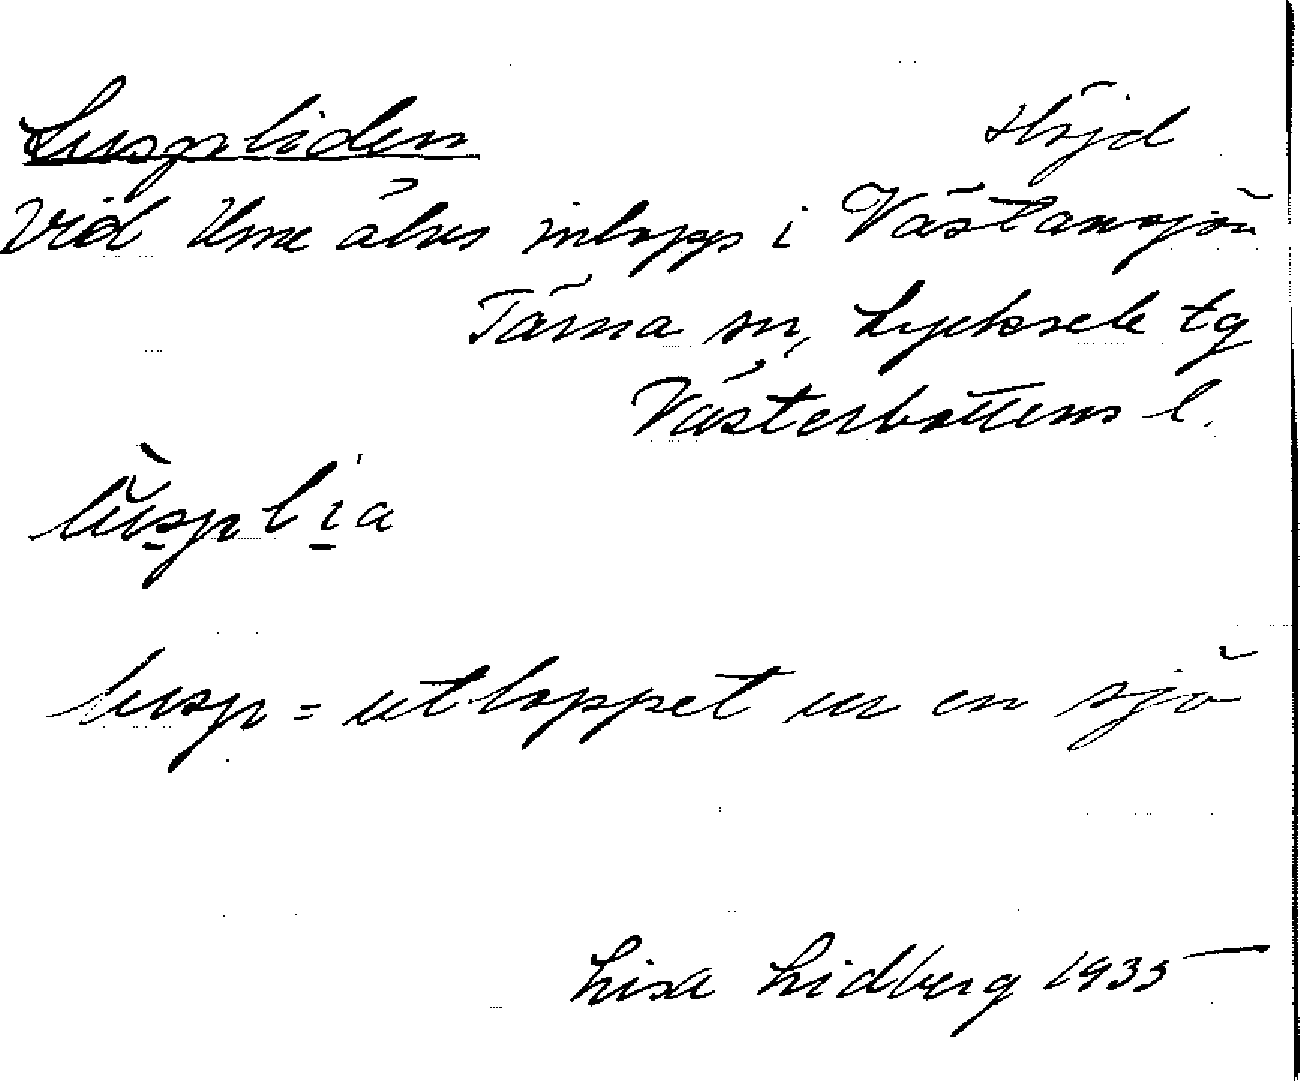 Luspliden Höjd
Vid Ume älvs inlopp i Västansjön
Tärna sn, Lycksele tg
Västerbottens l.
lusplia
lusp = utloppet ur en sjö
Lisa Lidberg 1935